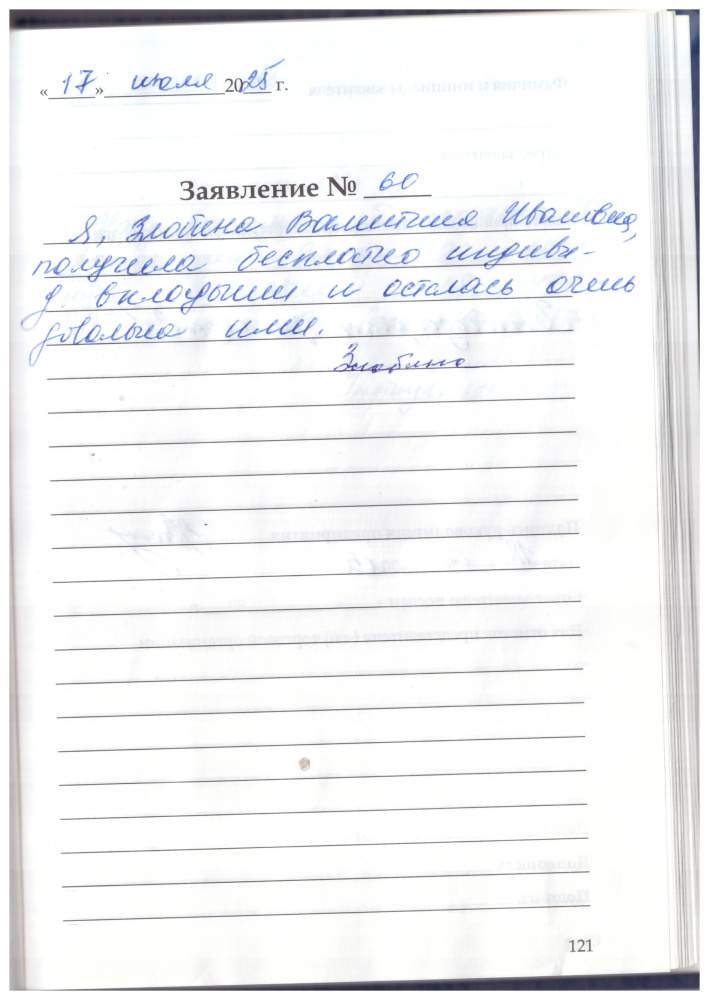 «17» июля 2025 г.
Заявление № 60
Я, Злобина Валентина Ивановна,
получила бесплатно индиви-
д. вкладыши и осталась очень
довольна ими.
Злобина
121